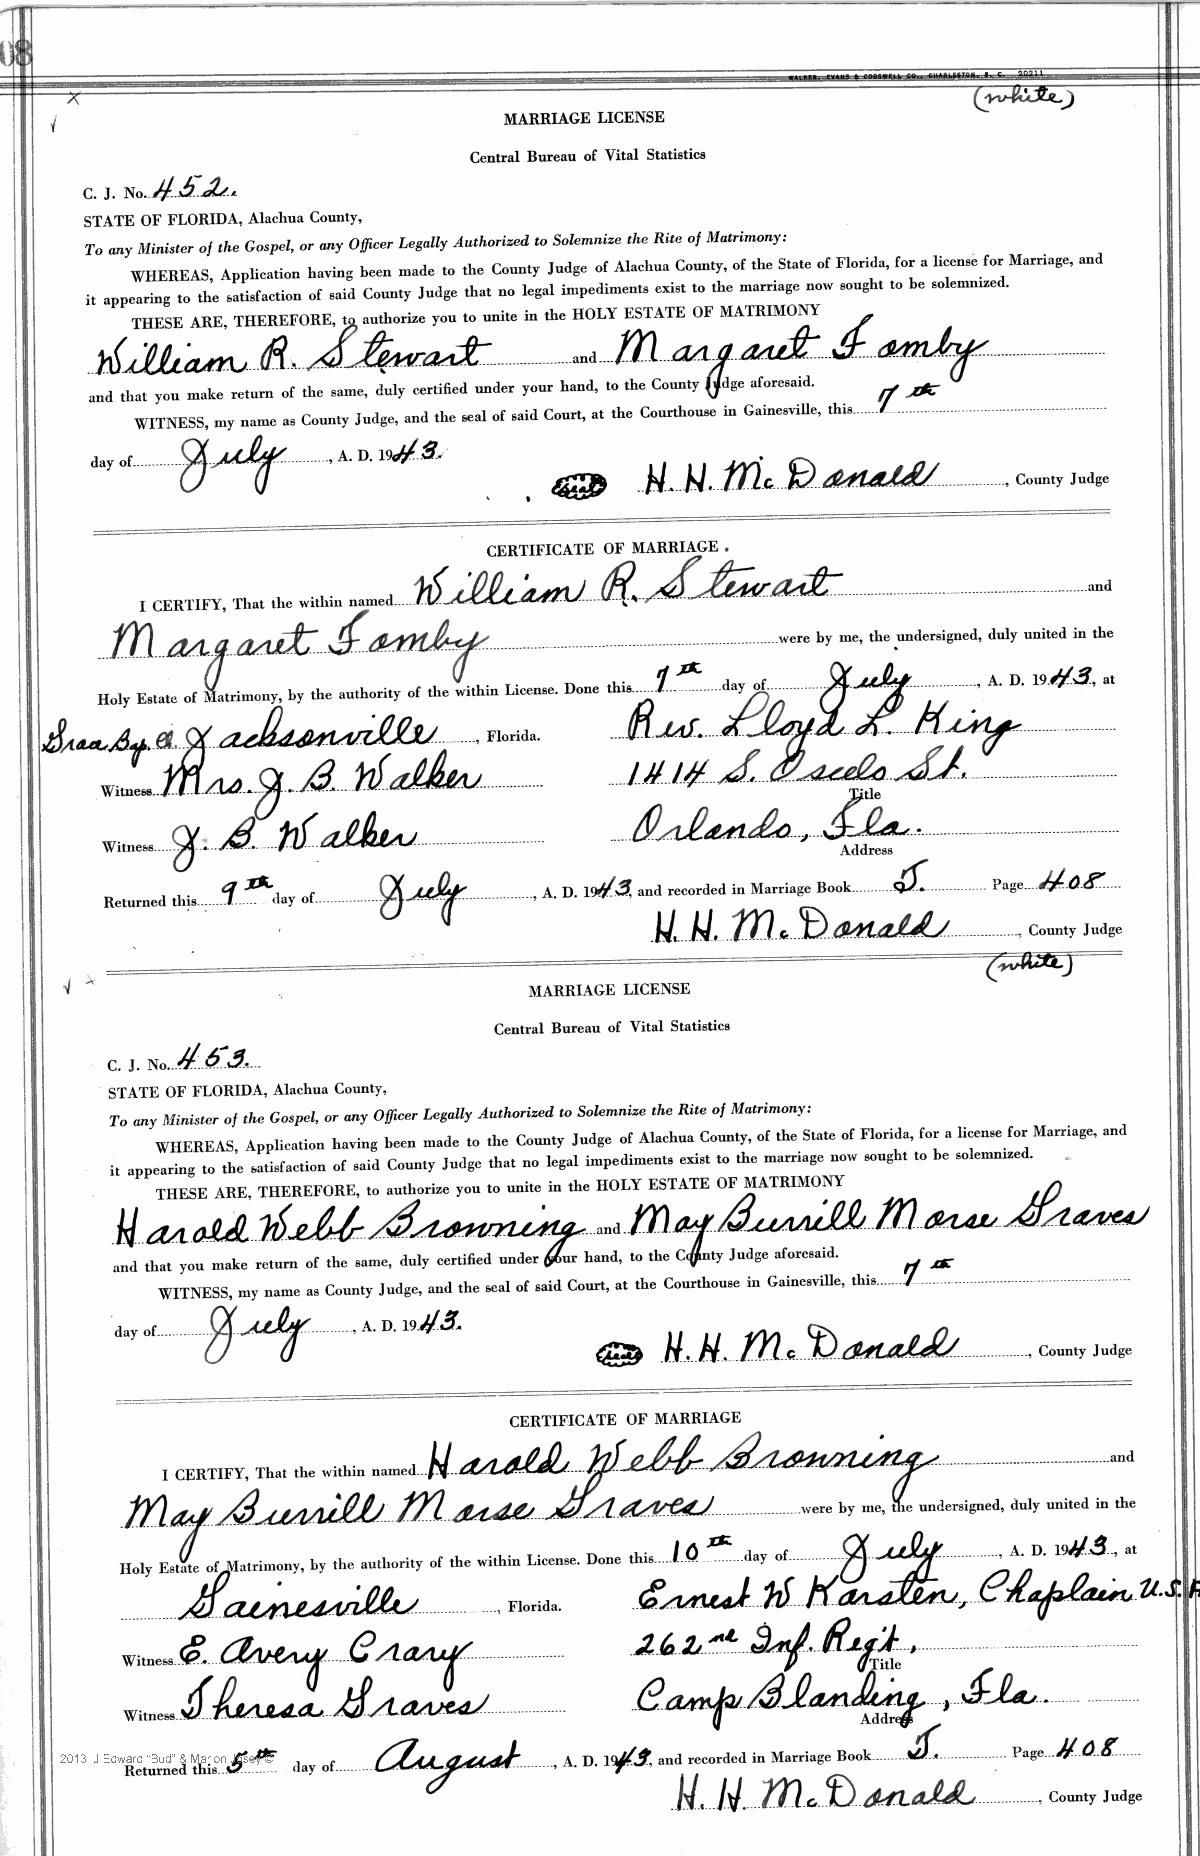 08
WALKER, EVANS & COGSWELL CO., CHARLESTON, S. C. 20211
(white)
MARRIAGE LICENSE
Central Bureau of Vital Statistics
C. J. No. 452.
STATE OF FLORIDA, Alachua County,
To any Minister of the Gospel, or any Officer Legally Authorized to Solemnize the Rite of Matrimony:
WHEREAS, Application having been made to the County Judge of Alachua County, of the State of Florida, for a license for Marriage, and
it appearing to the satisfaction of said County Judge that no legal impediments exist to the marriage now sought to be solemnized.
THESE ARE, THEREFORE, to authorize you to unite in the HOLY ESTATE OF MATRIMONY
William R. Stewart and Margaret Fomby
and that you make return of the same, duly certified under your hand, to the County Judge aforesaid.
WITNESS, my name as County Judge, and the seal of said Court, at the Courthouse in Gainesville, this 7th
day of July, A. D. 1943.
(seal) H. H. McDonald, County Judge
CERTIFICATE OF MARRIAGE.
I CERTIFY, That the within named William R. Stewart and
Margaret Fomby were by me, the undersigned, duly united in the
Holy Estate of Matrimony, by the authority of the within License. Done this 7th day of July, A. D. 1943, at
Jacksonville, Florida. Rev. Lloyd L. King
Witness Mrs. J. B. Walker 1414 S. St.
Title
Witness J. B. Walker Orlando, Fla.
Address
Returned this 9th day of July, A. D. 1943, and recorded in Marriage Book J. Page 408
H. H. McDonald, County Judge
(white)
MARRIAGE LICENSE
Central Bureau of Vital Statistics
C. J. No. 453.
STATE OF FLORIDA, Alachua County,
To any Minister of the Gospel, or any Officer Legally Authorized to Solemnize the Rite of Matrimony:
WHEREAS, Application having been made to the County Judge of Alachua County, of the State of Florida, for a license for Marriage, and
it appearing to the satisfaction of said County Judge that no legal impediments exist to the marriage now sought to be solemnized.
THESE ARE, THEREFORE, to authorize you to unite in the HOLY ESTATE OF MATRIMONY
Harold Webb Browning and May Burrill Morse Graves
and that you make return of the same, duly certified under your hand, to the County Judge aforesaid.
WITNESS, my name as County Judge, and the seal of said Court, at the Courthouse in Gainesville, this 7th
day of July, A. D. 1943.
(seal) H. H. McDonald, County Judge
CERTIFICATE OF MARRIAGE
I CERTIFY, That the within named Harold Webb Browning and
May Burrill Morse Graves were by me, the undersigned, duly united in the
Holy Estate of Matrimony, by the authority of the within License. Done this 10th day of July, A. D. 1943, at
Gainesville, Florida. Ernest W Karsten, Chaplain U.S.A
Witness E. Avery Crary 262nd Inf. Reg't,
Title
Witness Theresa Graves Camp Blanding, Fla.
Address
2013 J Edward "Bud" & Marion
Returned this 5th day of August, A. D. 1943, and recorded in Marriage Book J. Page 408
H. H. McDonald, County Judge